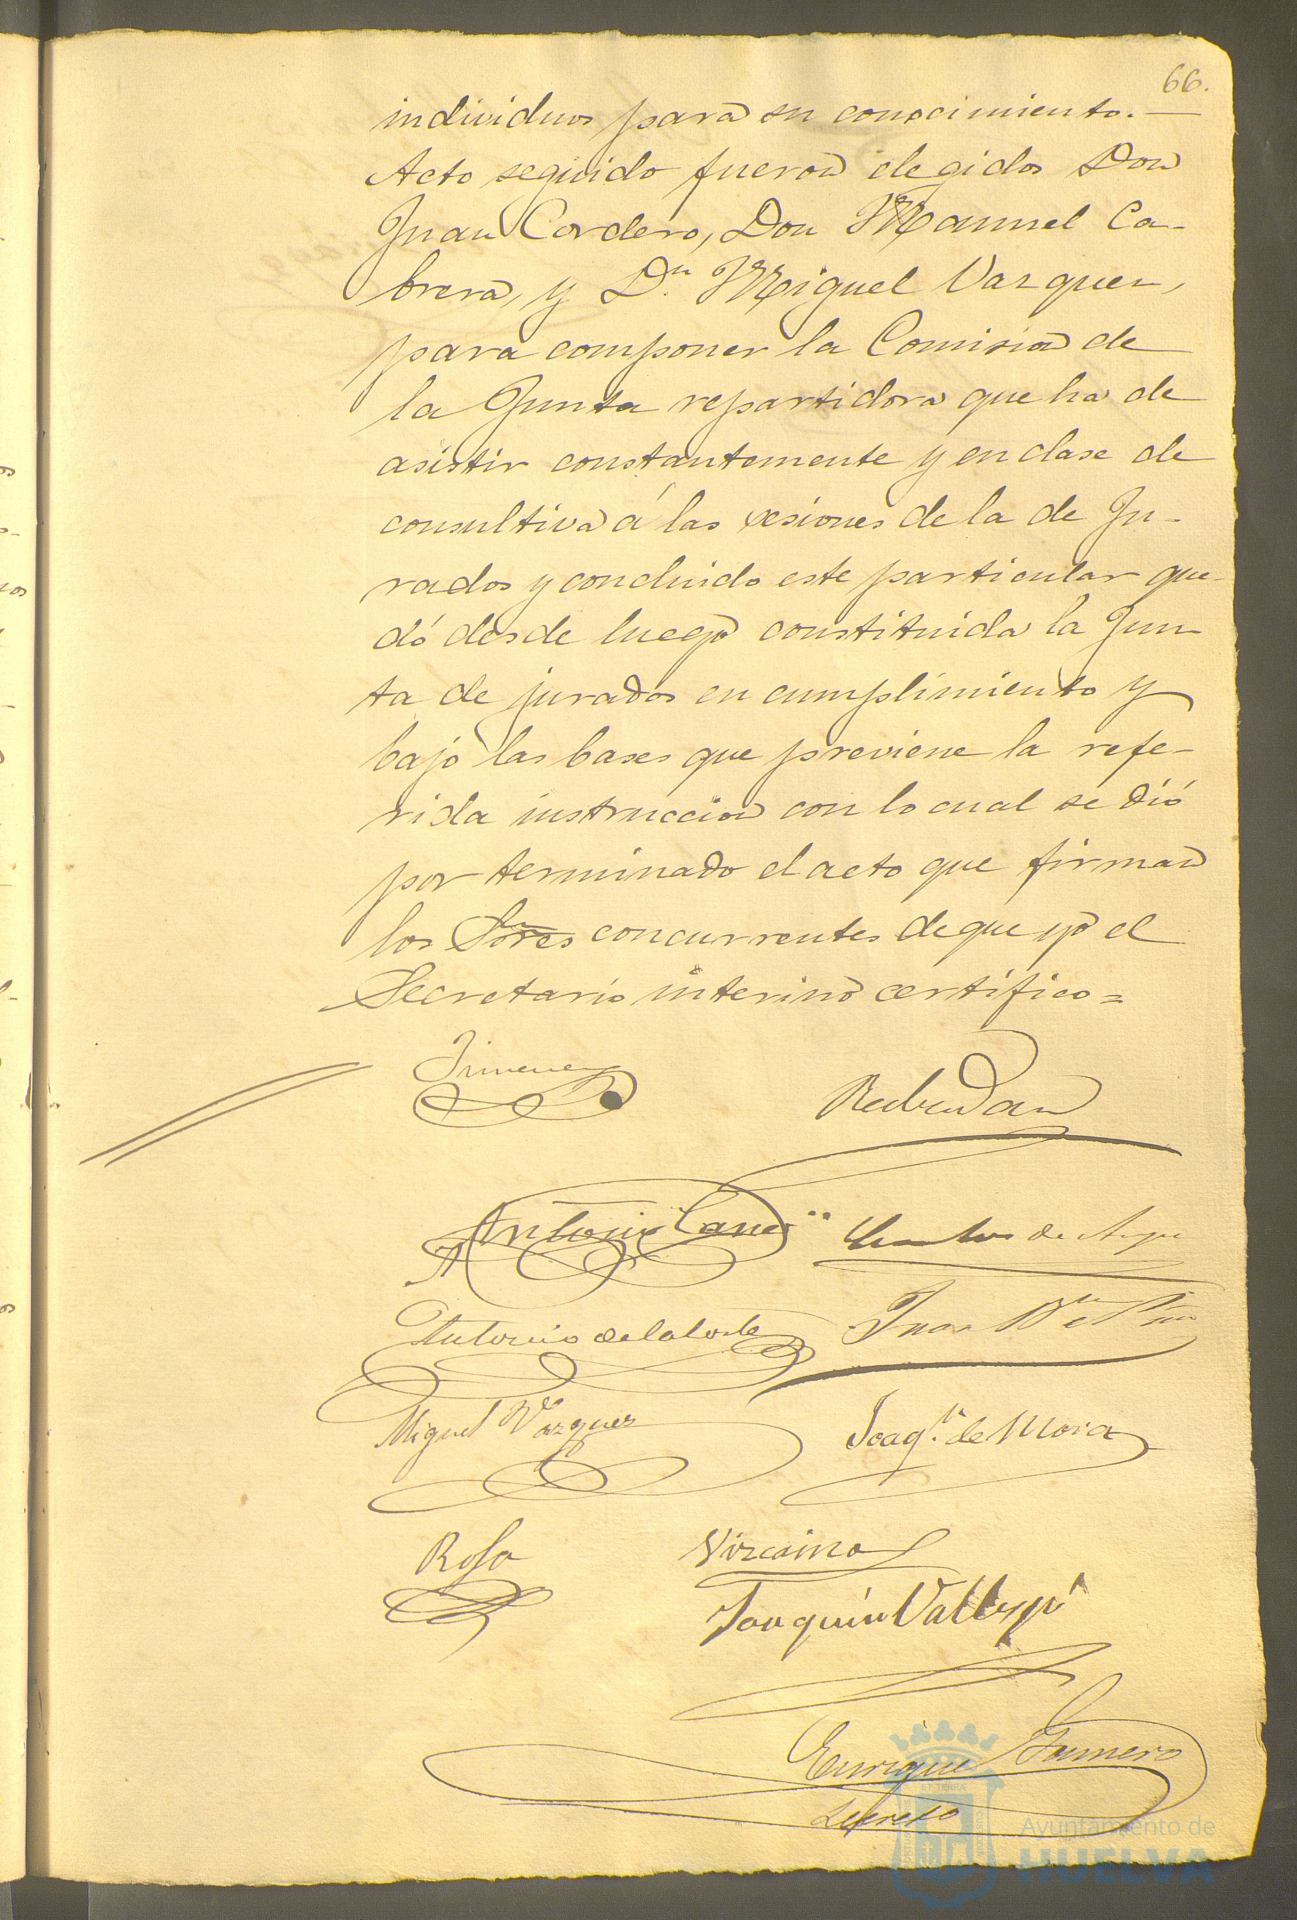 66.
individuos para su conocimiento. —
Acto seguido fueron elegidos Don
Juan Cordero, Don Manuel Ca-
brera, y D.n Miguel Vazquez,
para componer la Comision de
la Junta repartidora que ha de
asistir constantemente y en clase de
consultiva á las sesiones de la de Ju-
rados y concluido este particular que-
dó desde luego constituida la Jun-
ta de jurados en cumplimiento y
bajo las bases que previene la refe-
rida instruccion con lo cual se dió
por terminado el acto que firman
los Sres concurrentes de que yo el
Secretario interino certifico =
Jimenez
Rebudan
Antonio
de
Antonio de la Corte
Juan
Miguel Vazquez
Joaq.n de Mora
Rofa
Vizcaino
Joaquin Vallespí
Enrique Gamero
Ayuntamiento de
HUELVA